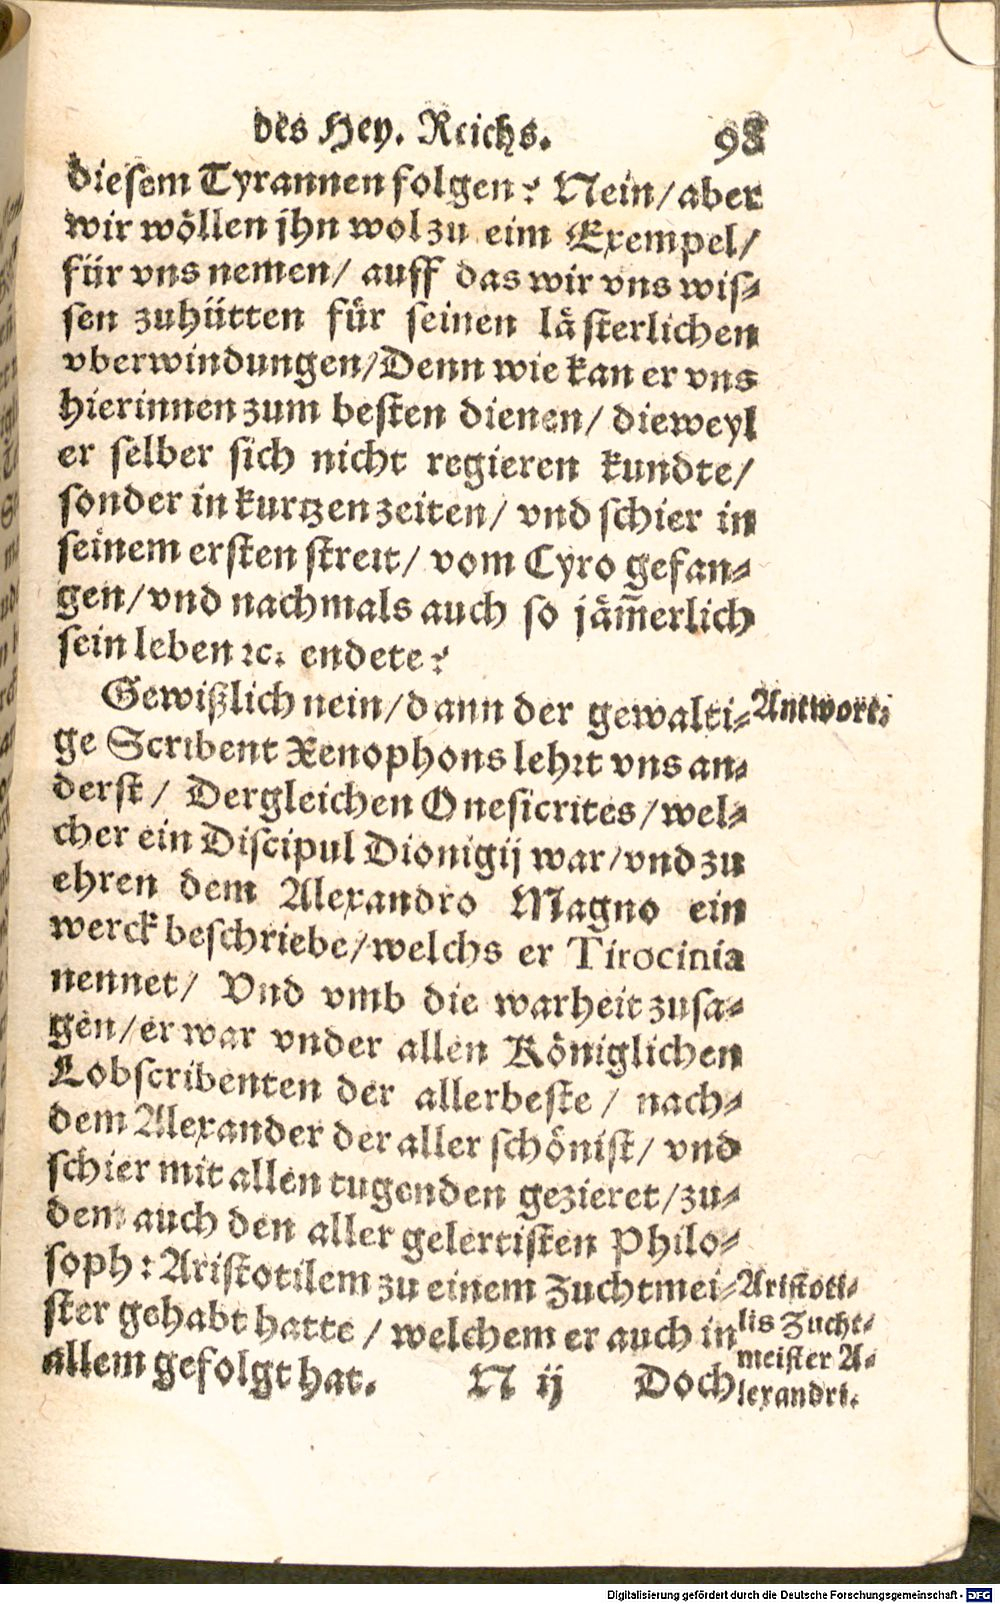 des Hey. Reichs. 98
diesem Tyrannen folgen? Nein/aber
wir wöllen jhn wol zu eim Exempel/
für vns nemen/ auff das wir vns wis-
sen zuhütten für seinen lästerlichen
vberwindungen/Denn wie kan er vns
hierinnen zum besten dienen/ dieweyl
er selber sich nicht regieren kundte/
sonder in kurtzen zeiten/ vnd schier in
seinem ersten streit/ vom Cyro gefan-
gen/vnd nachmals auch so jäm̅erlich
sein leben ꝛc. endete?
Gewißlich nein/dann der gewalti-
Antwort.
ge Scribent Xenophons lehrt vns an-
derst/ Dergleichen Onesicrites/wel-
cher ein Discipul Dionigij war/vnd zu
ehren dem Alexandro Magno ein
werck beschriebe/welchs er Tirocinia
nennet/ Vnd vmb die warheit zusa-
gen/er war vnder allen Königlichen
Lobscribenten der allerbeste/ nach-
dem Alexander der aller schönist/ vnd
schier mit allen tugenden gezieret/zu-
dem auch den aller gelertisten Philo-
soph: Aristotilem zu einem Zuchtmei-
ster gehabt hatte/welchem er auch in
allem gefolgt hat.
Aristoti-
lis Zucht-
meister A-
lexandri.
N ij Doch
Digitalisierung gefördert durch die Deutsche Forschungsgemeinschaft - DFG